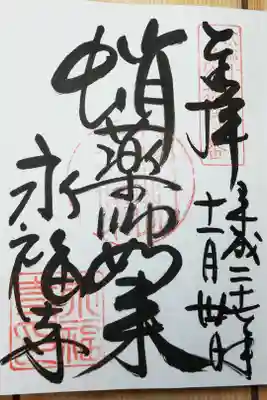 奉拝
平成二十七年
十一月丗日
蛸薬師如来
永福寺